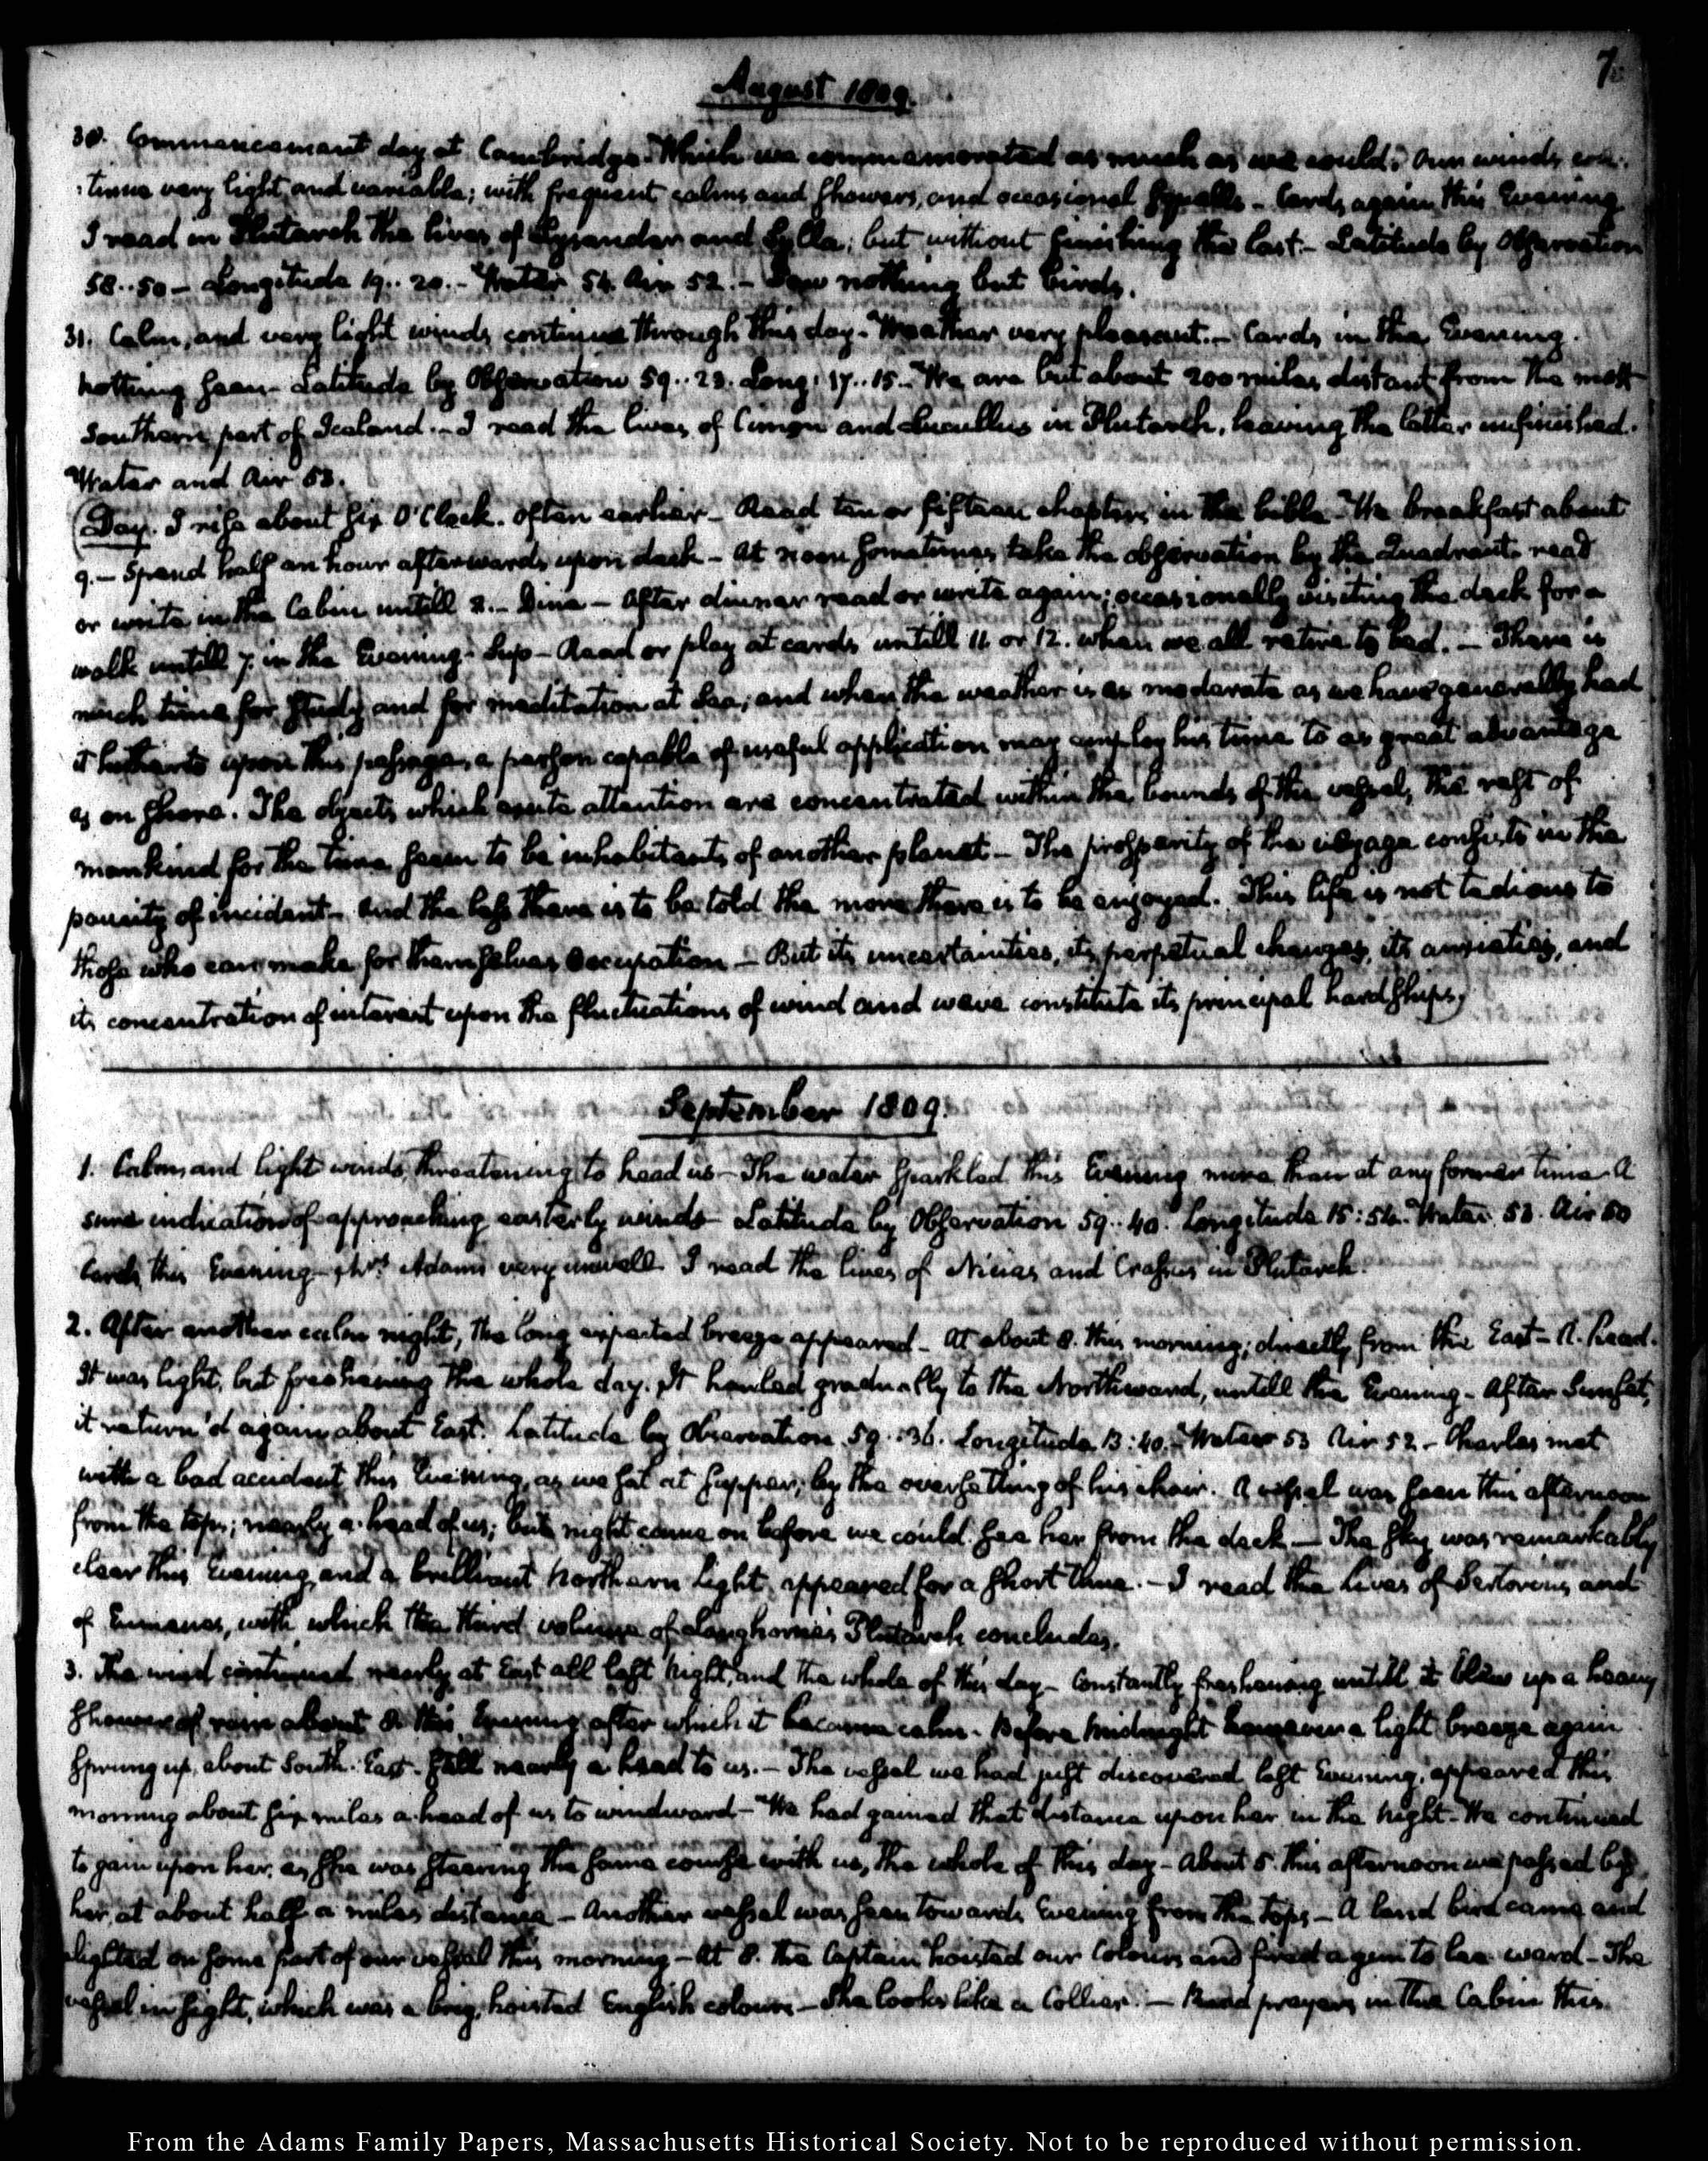 7.
August 1809.
30. Commencement day at Cambridge. Which we commemorated as much as we could. Our winds con-
:tinue very light, and variable; with frequent calms and showers, and occasional squalls – Cards again this Evening
I read in Plutarch the lives of Lysander and Sylla; but without finishing the last. – Latitude by Observation
58..50 – Longitude 19..20. – Water 54. Air 52. – Saw nothing but birds.
31. Calm, and very light winds continue through this day – Weather very pleasant. – Cards in the Evening.
nothing seen – Latitude by Observation 59..23. Long: 17..15. – We are but about 200 miles distant from the most
Southern part of Iceland. – I read the lives of Cimon and Lucullus in Plutarch, leaving the latter unfinished.
Water and Air 53.
Day. I rise about six O'Clock. often earlier – Read ten or fifteen chapters in the bible – We breakfast about
9. – Spend half an hour afterwards upon deck – At noon sometimes take the observation by the Quadrant. read
or write in the Cabin untill 2. – Dine – After dinner read or write again; occasionally visiting the deck for a
walk untill 7. in the Evening – Sup – Read or play at cards untill 11 or 12. when we all retire to bed. – There is
much time for study and for meditation at Sea; and when the weather is as moderate as we have generally had
it hitherto upon this passage, a person capable of useful application may employ his time to as great advantage
as on shore. The objects which excite attention are concentrated within the bounds of the vessel, the rest of
mankind for the time seem to be inhabitants of another planet – The prosperity of the voyage consists in the
paucity of incident – And the less there is to be told the more there is to be enjoyed. This life is not tedious to
those who can make for themselves occupation – But its uncertainties, its perpetual changes, its anxieties, and
its concentration of interest upon the fluctuations of wind and wave constitute its principal hardships.
September 1809.
1. Calms and light winds, threatening to head us – The water sparkled this Evening more than at any former time – A
sure indication of approaching easterly winds – Latitude by Observation 59..40. Longitude 15:54. Water 53. Air 50
Cards this Evening – Mrs. Adams very unwell. I read the lives of Nicias and Crassus in Plutarch.
2. After another calm night, the long expected breeze appeared – At about 8. this morning; directly from the East – A-head.
It was light, but freshening the whole day. It hauled gradually to the Northward, untill the Evening – After Sunset,
it return'd again about East. Latitude by Observation 59.:36. Longitude 13:40. – Water 53 Air 52 – Charles met
with a bad accident this Evening, as we sat at supper; by the oversetting of his chair. A vessel was seen this afternoon
from the tops; nearly a-head of us; but night came on before we could see her from the deck – The sky was remarkably
clear this Evening, and a brilliant Northern light appeared for a short time. – I read the lives of Sertorius, and
of Eumenes, with which the third volume of Langhorne's Plutarch concludes.
3. The wind continued nearly at East all last night, and the whole of this day – Constantly freshening untill it blew up a heavy
shower of rain about 8. this Evening after which it became calm – Before midnight however a light breeze again
sprung up, about South-East. still nearly a-head to us. – The vessel we had just discovered last Evening, appeared this
morning about six miles a-head of us to windward – We had gained that distance upon her in the night – We continued
to gain upon her, as she was steering the same course with us, the whole of this day – About 5. this afternoon we passed by
her, at about half a miles distance – Another vessel was seen towards Evening from the tops – A land bird came and
alighted on some part of our vessel this morning – At 8. the Captain hoisted our Colours and fired a gun to lee-ward – The
vessel in sight, which was a brig, hoisted English colours – She looks like a Collier. – Read prayers in the Cabin this.
From the Adams Family Papers, Massachusetts Historical Society. Not to be reproduced without permission.